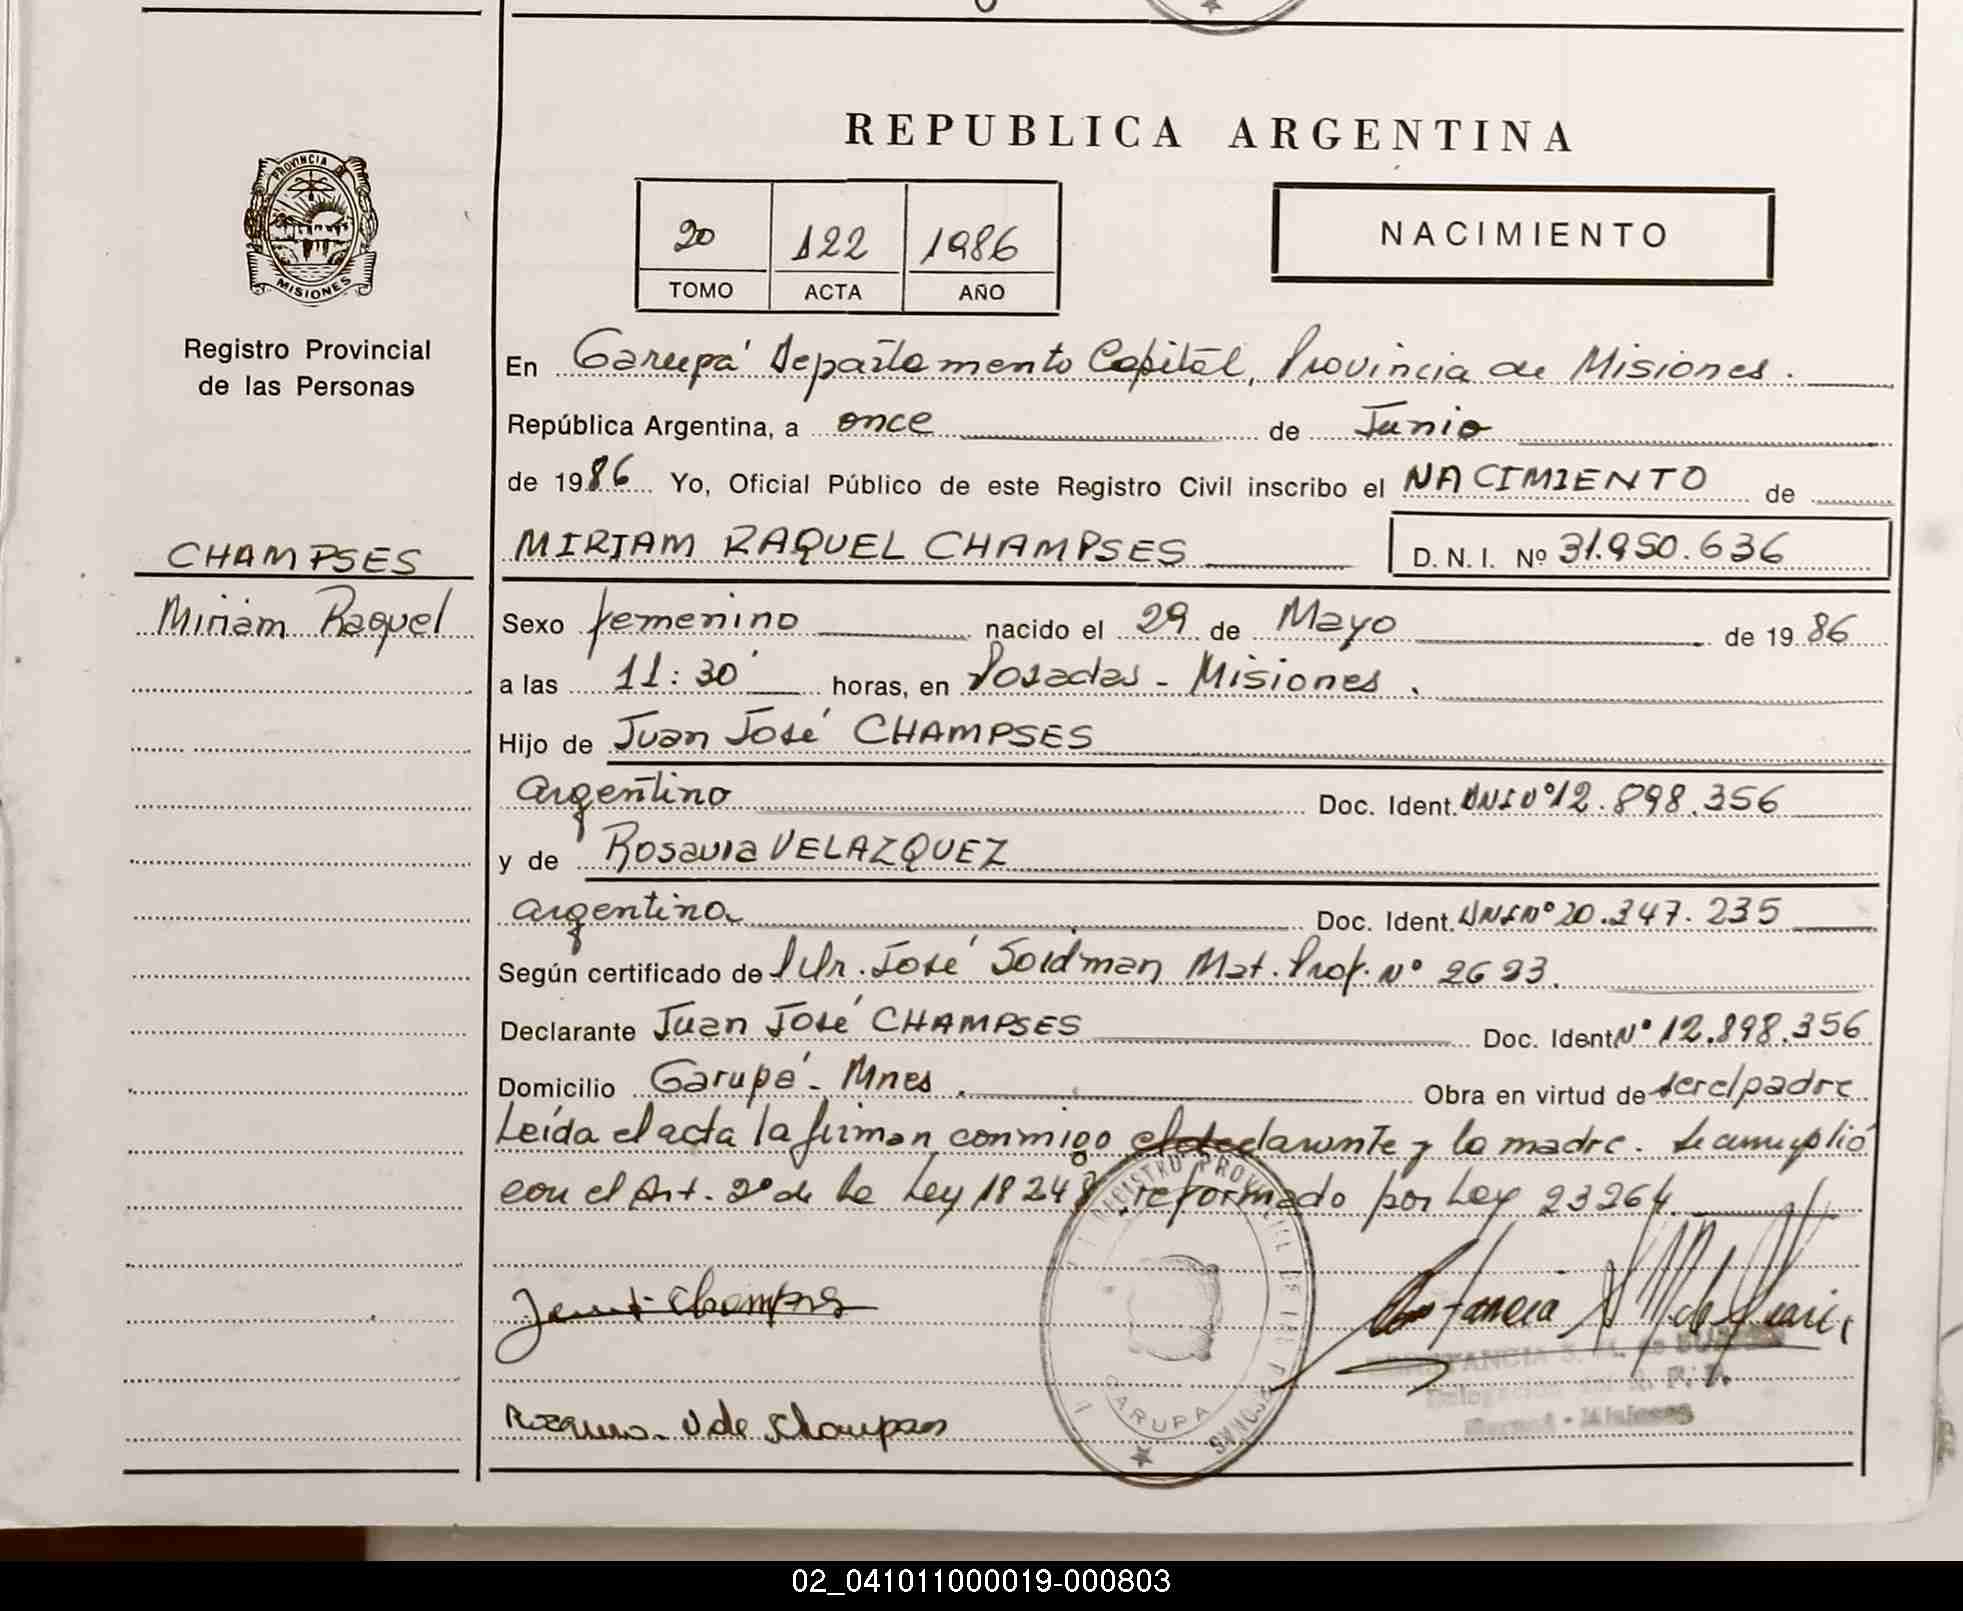 REPUBLICA ARGENTINA
PROVINCIA DE
MISIONES
Registro Provincial
de las Personas
20 122 1986
TOMO ACTA AÑO
NACIMIENTO
En Garupá Departamento Capital, Provincia de Misiones.
República Argentina, a once de Junio
de 1986 Yo, Oficial Público de este Registro Civil inscribo el NACIMIENTO de
CHAMPSES
Miriam Raquel
MIRIAM RAQUEL CHAMPSES D. N. I. Nº 31.950.636
Sexo femenino nacido el 29 de Mayo de 1986
a las 11:30 horas, en Posadas - Misiones.
Hijo de Juan José CHAMPSES
argentino Doc. Ident. DNI Nº 12.898.356
y de Rosaura VELAZQUEZ
argentina Doc. Ident. DNI Nº 20.347.235
Según certificado de José Mat. Prof. Nº 2693.
Declarante Juan José CHAMPSES Doc. Ident Nº 12.898.356
Domicilio Garupá - Mnes. Obra en virtud de ser el padre
Leída el acta la firman conmigo el declarante y la madre. Se cumplió
con el Art. 2º de la Ley 18248 reformado por Ley 23264.
REGISTRO PROVINCIAL DE LAS PERSONAS
GARUPA
V de Champses
02_041011000019-000803